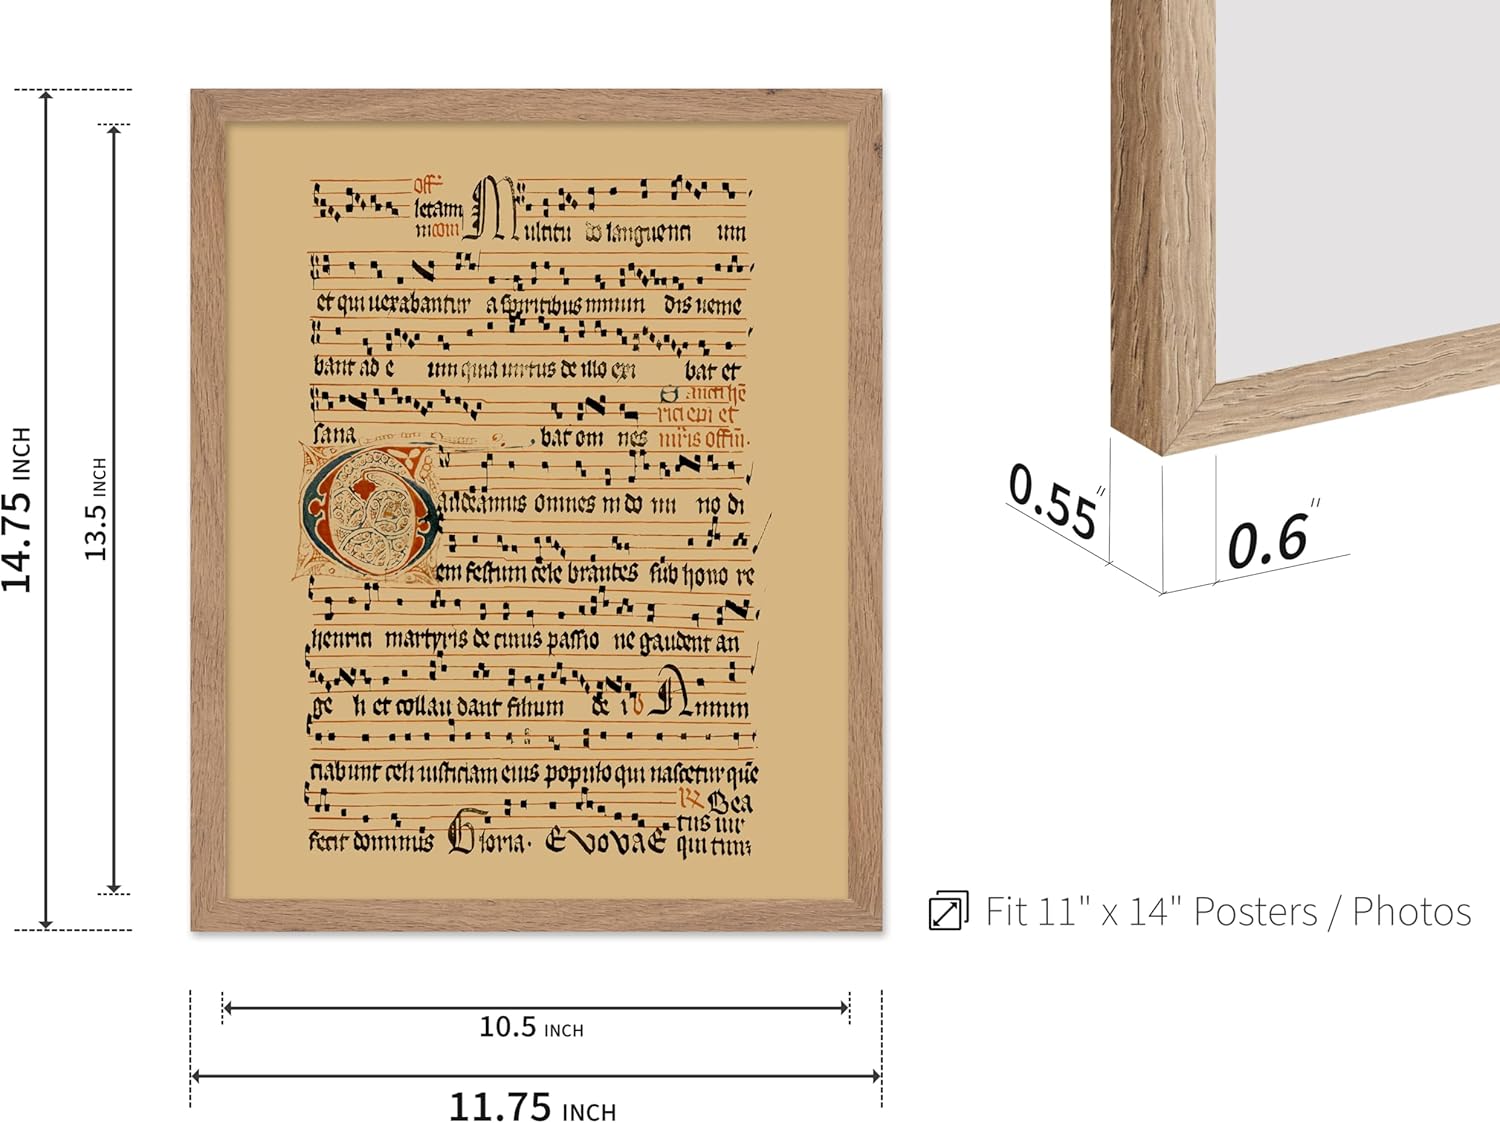 14.75 INCH
13.5 INCH
off
letam
ultitu do languenti um
et qui uexabantur a spiritibus inmun dis ueme
bant ad e um quia uirtus de illo exi bat et
Sancti hē
rici epi et
sana bat om nes mr̄is offm̄.
Gaudeamus omnes in do mi no di
em festum cele brantes sub hono re
henrici martyris de cuius passio ne gaudent an
ge li et collau dant filium de i Annun
ciabunt celi iusticiam eius populo qui nascetur quē
℟ Bea
tus uir
fecit dominus Gloria. EVOVAE qui tim
10.5 INCH
11.75 INCH
0.55"
0.6"
Fit 11" x 14" Posters / Photos